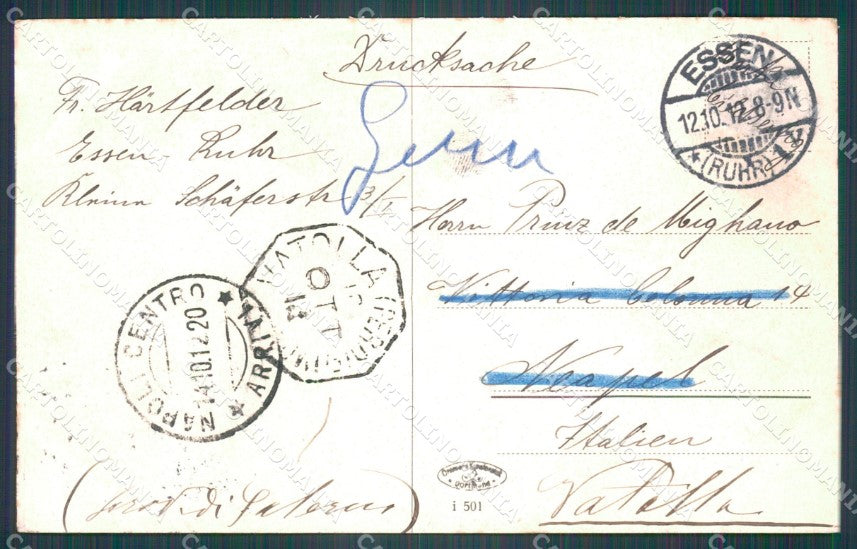 Drucksache
Fr. Härtfelder
Essen Ruhr
Kleine Schäferstr 3/I
ESSEN
12.10.12.8-9N
* (RUHR) 1
Herrn Prinz de Mighano
Vittoria Colonna 14
Neapel
Italien
Vatolla
VATOLLA
OTT
12
NAPOLI CENTRO * ARRIVI *
14.10.12 20
(prov. di Salerno)
Dortmund
i 501
CARTOLINOMANIA